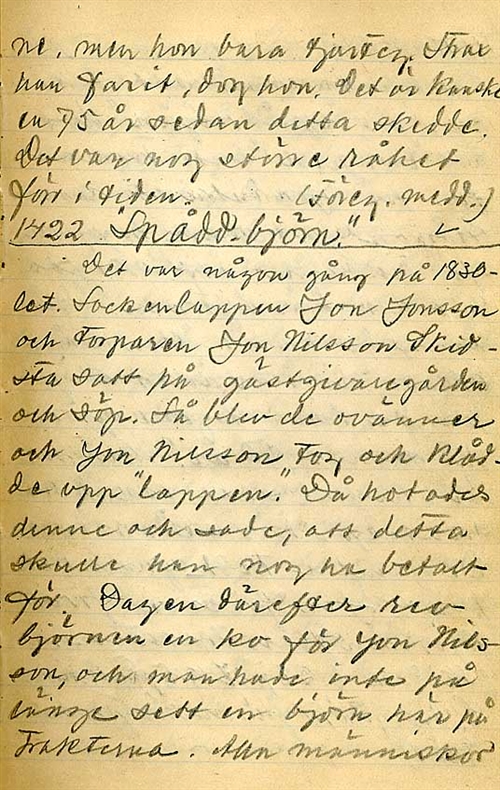 ne, men hon bara
han farit, dog hon. Det är kanske
en 75 år sedan detta skedde.
Det var nog större råhet
förr i tiden. (Föreg. medd.)
1422 "Spådd-björn."
Det var någon gång på 1830-
let. Sockenlappen Jon Jonsson
och Torparen Jon Nilsson Skid-
sta satt på gästgivaregården
och söp. Så blev de ovänner
och Jon Nilsson tog och klåd-
de upp "lappen." Då hotades
denne och sade, att detta
skulle han nog ha betalt
för. Dagen därefter rev
björnen en ko för Jon Nils-
son, och man hade inte på
länge sett en björn här på
trakterna. Alla människor